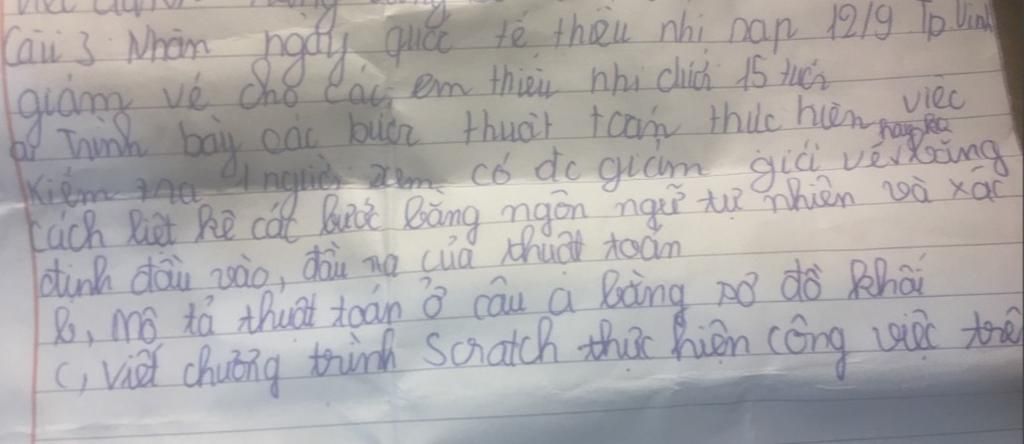 Câu 3 Nhân ngày quốc tế thiếu nhi nạp 12/9 Tp Vinh
giảm vé cho các em thiếu nhi dưới 15 tuổi
a, Trình bày các bước thuật toán thực hiện việc
kiểm tra 1 người xem có đc giảm giá vé hay ko bằng
cách liệt kê các bước bằng ngôn ngữ tự nhiên và xác
định đầu vào, đầu ra của thuật toán
b, mô tả thuật toán ở câu a bằng sơ đồ khối
c, viết chương trình Scratch thực hiện công việc trê